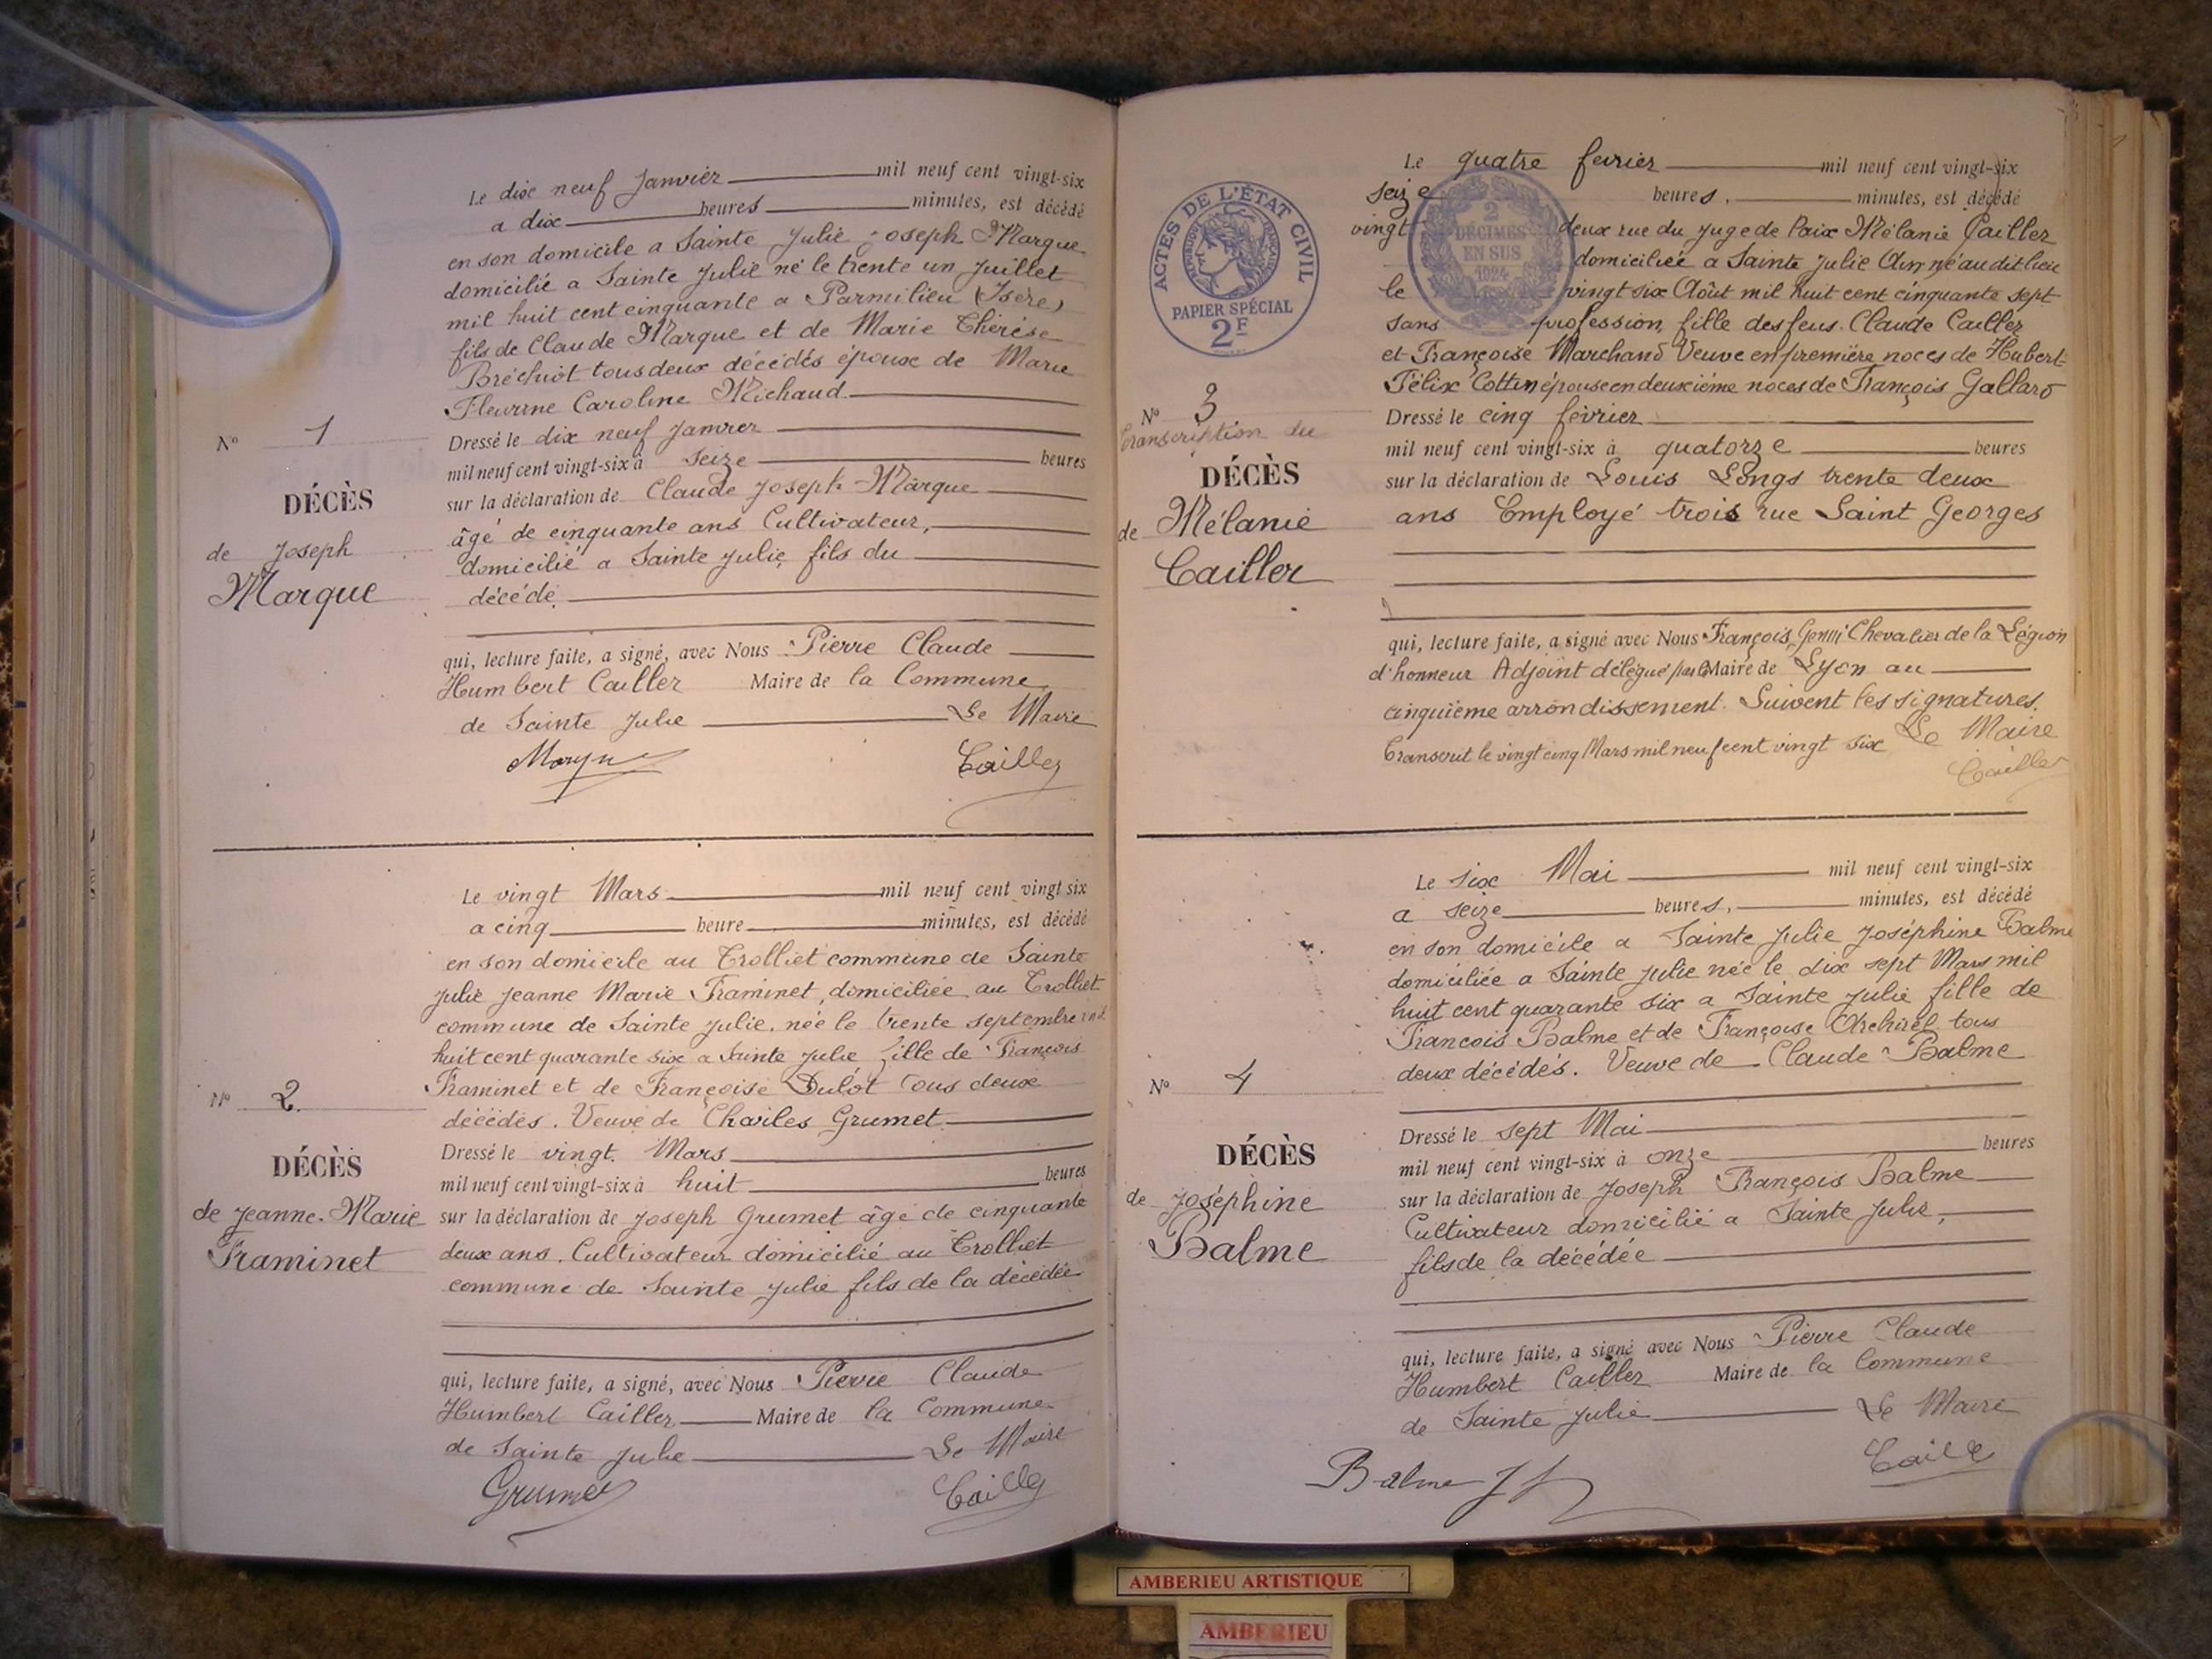 Le dix neuf Janvier mil neuf cent vingt-six
a dix heures minutes, est décédé
en son domicile a Sainte Julie Joseph Marque
domicilié a Sainte Julie né le trente un Juillet
mil huit cent cinquante a Parmilieu (Isère)
fils de Claude Marque et de Marie Thérèse
Bréchiot tous deux décédés époux de Marie
Fleurine Caroline Michaud.
Dressé le dix neuf Janvier
mil neuf cent vingt-six à seize heures
sur la déclaration de Claude Joseph Marque
âgé de cinquante ans Cultivateur,
domicilié a Sainte Julie, fils du
décédé.
qui, lecture faite, a signé, avec Nous Pierre Claude
Humbert Cailler Maire de la Commune
de Sainte Julie Le Maire
Cailler
N° 1
DÉCÈS
de Joseph
Marque
Le vingt Mars mil neuf cent vingt six
a cinq heure minutes, est décédé
en son domicile au Trolliet commune de Sainte
Julie Jeanne Marie Framinet, domiciliée au Trolliet
commune de Sainte Julie. née le trente septembre mil
huit cent quarante six a Sainte Julie fille de François
Framinet et de Françoise Dulot tous deux
décédés. Veuve de Charles Grumet
Dressé le vingt Mars
mil neuf cent vingt-six à huit heures
sur la déclaration de Joseph Grumet âgé de cinquante
deux ans. Cultivateur domicilié au Trolliet
commune de Sainte Julie fils de la décédée
qui, lecture faite, a signé, avec Nous Pierre Claude
Humbert Cailler Maire de la Commune
de Sainte Julie Le Maire
Grumet Cailler
N° 2.
DÉCÈS
de Jeanne-Marie
Framinet
ACTES DE L'ÉTAT CIVIL
RÉPUBLIQUE FRANÇAISE
PAPIER SPÉCIAL
2F
2
DÉCIMES
EN SUS
1924
Le quatre fevrier mil neuf cent vingt-six
seize heures, minutes, est décédé
vingt deux rue du Juge de Paix Mélanie Cailler
domiciliée a Sainte Julie Ain né au dit lieu
le vingt six Août mil huit cent cinquante sept
sans profession, fille des feus Claude Cailler
et Françoise Marchand Veuve en première noces de Hubert
Félix Cottin épouse en deuxième noces de François Gallard
Dressé le cinq fevrier
mil neuf cent vingt-six à quatorze heures
sur la déclaration de Louis Longs trente deux
ans Employé trois rue Saint Georges
qui, lecture faite, a signé avec Nous François Chevalier de la Légion
d'honneur Adjoint délégué par le Maire de Lyon au
cinquième arrondissement. Suivent les signatures.
Transcrit le vingt cinq Mars mil neuf cent vingt six Le Maire
Cailler
N° 3
Transcription du
DÉCÈS
de Mélanie
Cailler
Le six Mai mil neuf cent vingt-six
a seize heures, minutes, est décédé
en son domicile a Sainte Julie Joséphine Balme
domiciliée a Sainte Julie née le dix sept Mars mil
huit cent quarante six a Sainte Julie fille de
François Balme et de Françoise tous
deux décédés. Veuve de Claude Balme
Dressé le sept Mai
mil neuf cent vingt-six à onze heures
sur la déclaration de Joseph François Balme
Cultivateur domicilié a Sainte Julie,
fils de la décédée
qui, lecture faite, a signé avec Nous Pierre Claude
Humbert Cailler Maire de la Commune
de Sainte Julie Le Maire
Balme Cailler
N° 4
DÉCÈS
de Joséphine
Balme
AMBERIEU ARTISTIQUE
AMBERIEU